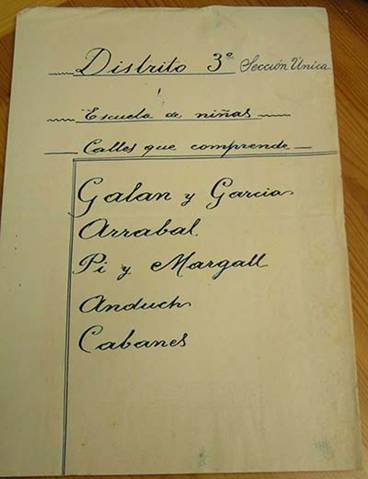 Distrito 3º Sección Única
Escuela de niñas
Calles que comprende
Galan y Garcia
Arrabal
Pi y Margall
Anduch
Cabanes